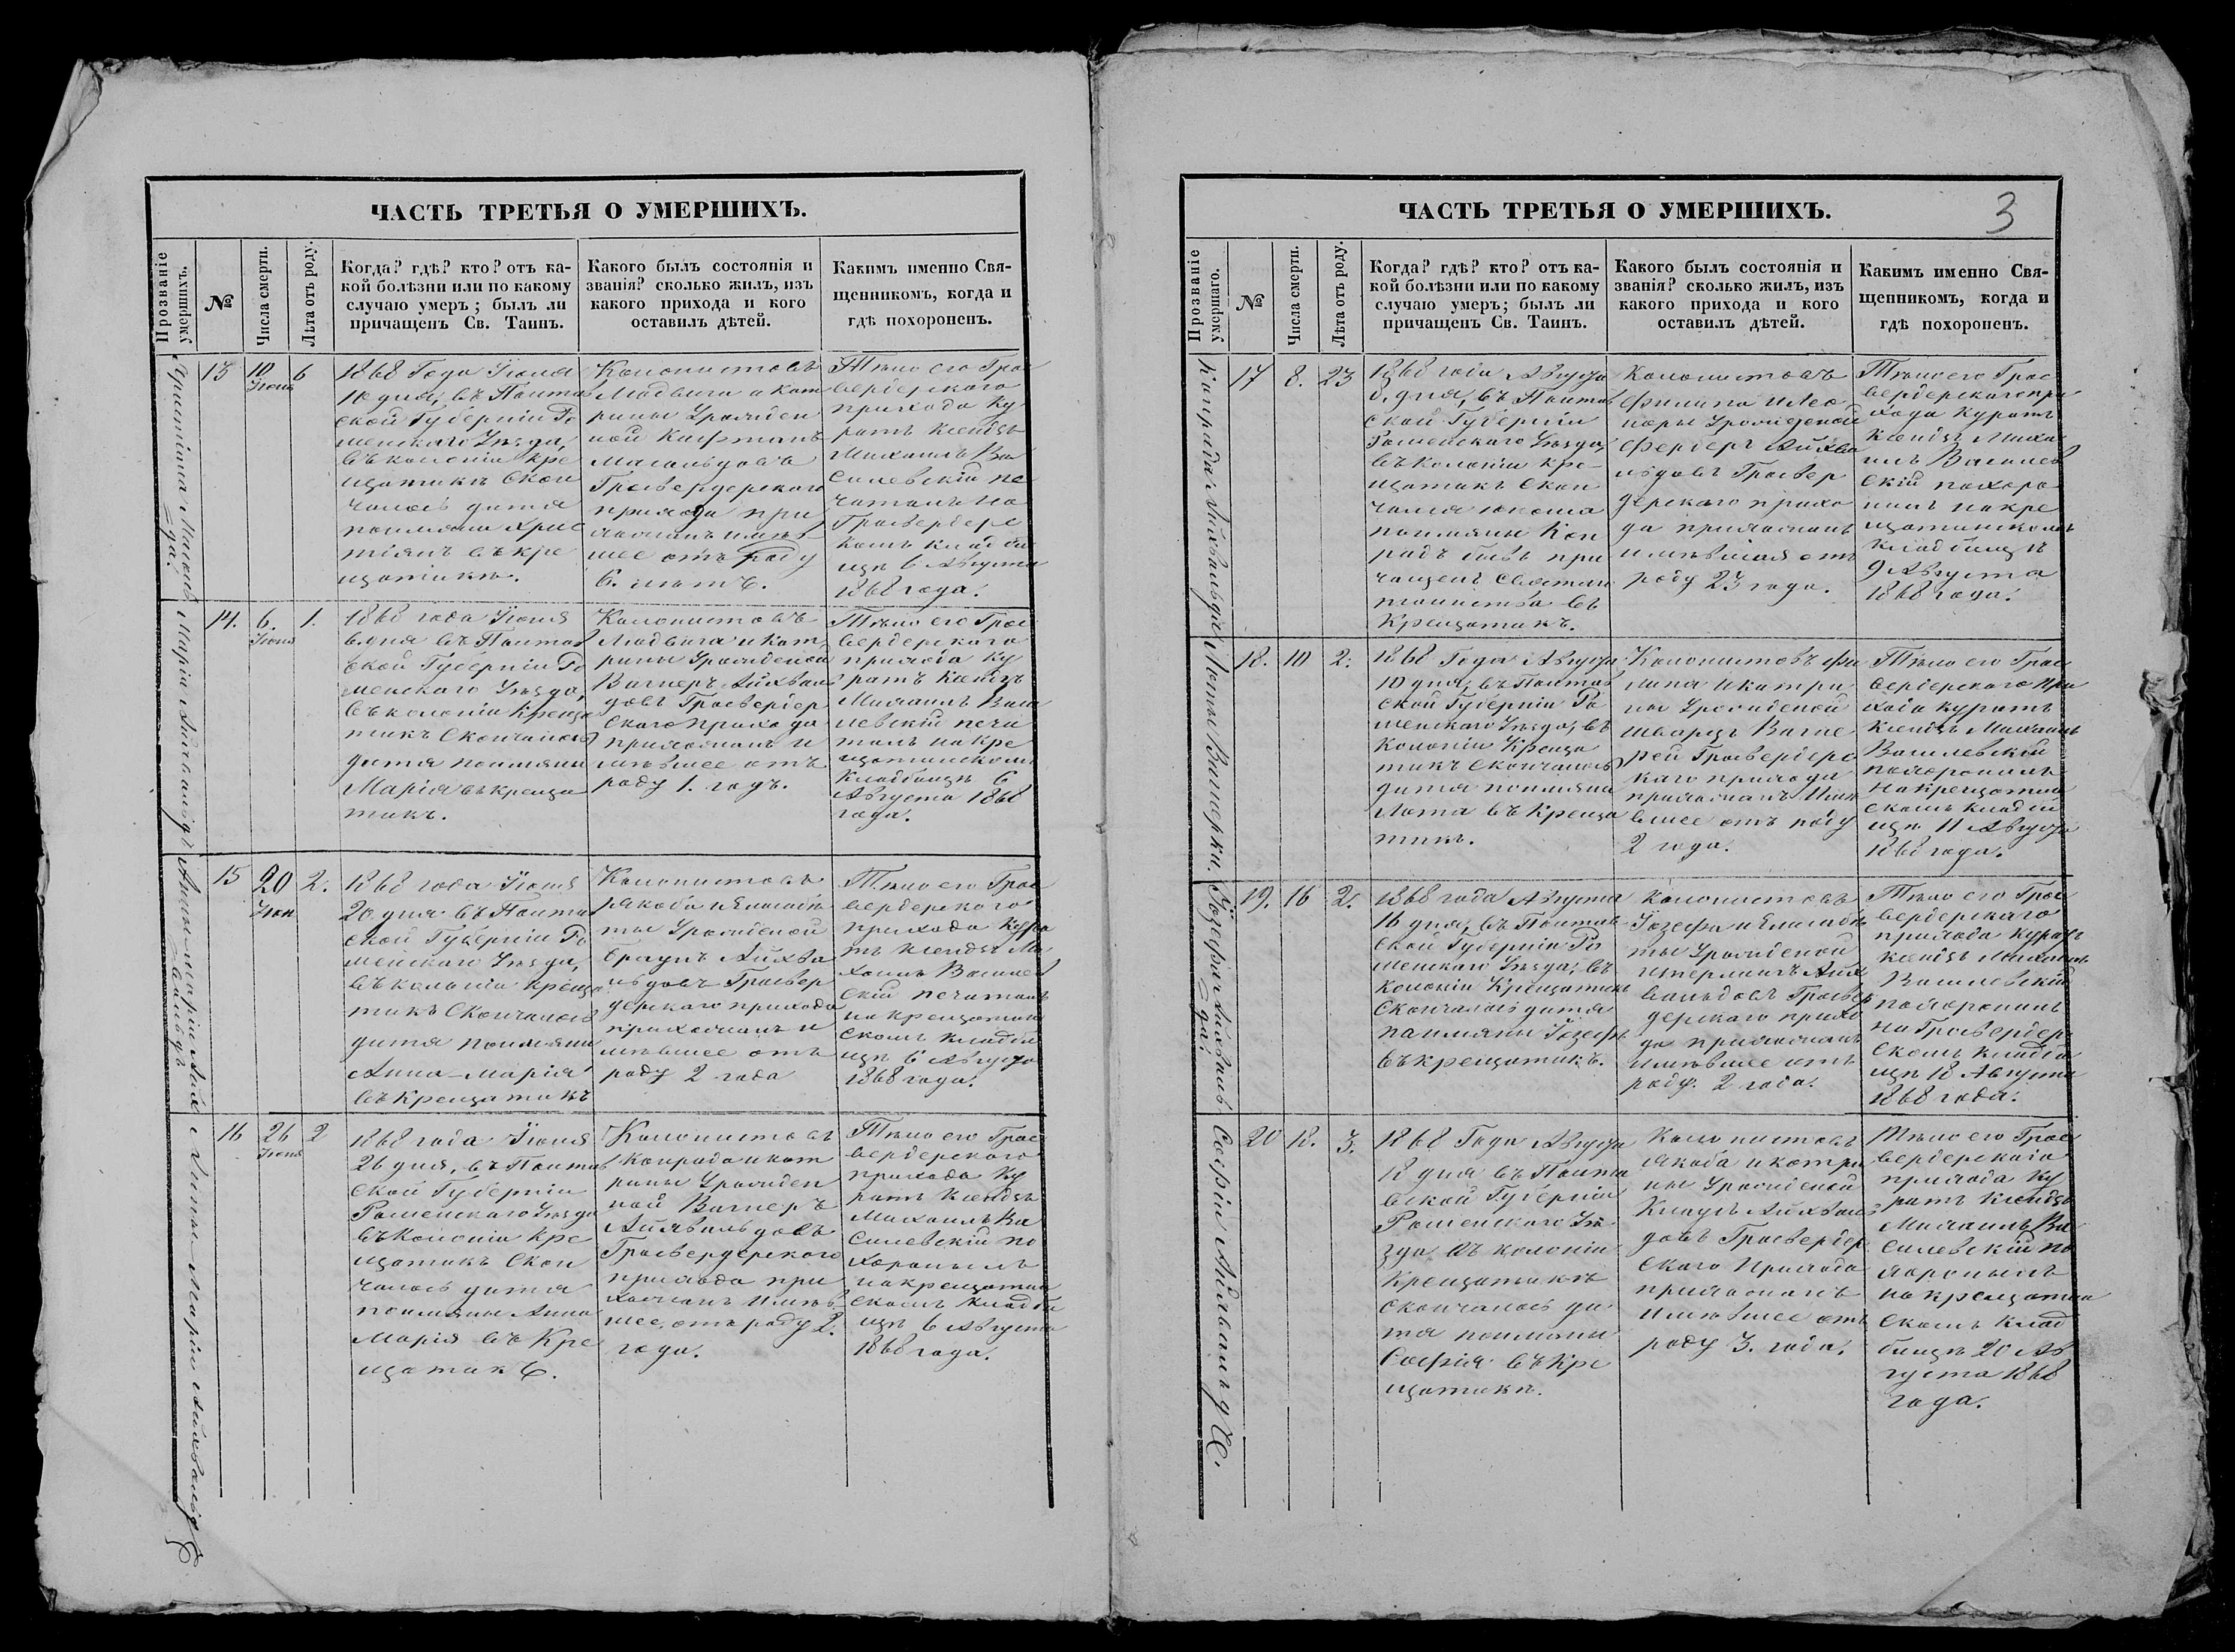 ЧАСТЬ ТРЕТЬЯ О УМЕРШИХЪ.
Прозваніе умершихъ.
№
Числа смерти.
Лѣта отъ роду.
Когда? гдѣ? кто? отъ ка-
кой болѣзни или по какому
случаю умеръ; былъ ли
причащенъ Св. Таинъ.
Какого былъ состоянія и
званія? сколько жилъ, изъ
какого прихода и кого
оставилъ дѣтей.
Какимъ именно Свя-
щенникомъ, когда и
гдѣ похороненъ.
13
10
Іюня
6
1868 Года Іюня
10 дня, въ Полтав
ской Губерніи Ро
менскаго Уѣзда,
въ колоніи Кре
щатикъ Скон
чалось дитя
поимяни Хрис
тіянъ въ Кре
щатикѣ.
Колонистовъ
Людвига и Кат
рины Урожден
ной
Гросвердерскаго
прихода при
хожанъ имѣв
шее отъ роду
6. лѣтъ.
Тѣло его Грос
вердерскаго
прихода Ку
ратъ Ксендзъ
Михаилъ Ва
силевскій пе
чаталъ на
Гросвердерс
комъ кладби
щѣ 6 Августа
1868 года.
14.
6.
Іюня
1.
1868 года Іюня
6. дня въ Полтав
ской Губерніи Ро
менскаго Уѣзда,
въ колоніи Креща
тикъ Скончалось
дитя поимяни
Марія въ Креща
тикѣ.
Колонистовъ
Людвига и Кат
рины Урожденой
Вагнеръ Айхваль
довъ Гросвердер
скаго прихода
прихожанъ и
мѣвшее отъ
роду 1. годъ.
Тѣло его Грос
вердерскаго
прихода Ку
ратъ Ксендзъ
Михаилъ Васи
левскій печа
талъ на Кре
щатинскомъ
Кладбищѣ 6
Августа 1868
года.
15
20
Іюн
2.
1868 года Іюня
20 дня въ Полтав
ской Губерніи Ро
менскаго Уѣзда,
въ колоніи Креща
тикъ Скончалось
дитя поимяни
Анна-Марія
въ Крещатикѣ
Колонистовъ
Якоба и Елисаве
ты Урожденой
Браунъ Айхва
льдовъ Гросвер
дерскаго прихода
прихожанъ и
мѣвшее отъ
роду 2 года
Тѣло его Грос
вердерскаго
прихода Кура
тъ Ксендзъ Ми
хаилъ Василев
скій печаталъ
на Крещатин
скомъ Кладби
щѣ 6 Августа
1868 года.
16
26
Іюня
2
1868 года Іюня
26 дня, въ Полтав
ской Губерніи
Роменскаго Уѣзда
въ Колоніи Кре
щатикъ Скон
чалось дитя
поимяни Анна
Марія въ Кре
щатикѣ.
Колонистовъ
Конрада и Кат
рины Урожден
ной Вагнеръ
Айхвальдовъ
Гросвердерскаго
прихода при
хожанъ имѣв
шее, отъ роду 2.
года.
Тѣло его Грос
вердерскаго
прихода Ку
ратъ Ксендзъ
Михаилъ Ва
силевскій по
хоронилъ
на Крещатин
скомъ Кладби
щѣ 6 Августа
1868 года.
Марія Айхвальдъ
ЧАСТЬ ТРЕТЬЯ О УМЕРШИХЪ.
3
Прозваніе умершаго.
№
Числа смерти.
Лѣта отъ роду.
Когда? гдѣ? кто? отъ ка-
кой болѣзни или по какому
случаю умеръ; былъ ли
причащенъ Св. Таинъ.
Какого былъ состоянія и
званія? сколько жилъ, изъ
какого прихода и кого
оставилъ дѣтей.
Какимъ именно Свя-
щенникомъ, когда и
гдѣ похороненъ.
Конрада Айхвальда
17
8.
23
1868 года Августа
8. дня, въ Полтав
ской Губерніи
Роменскаго Уѣзда,
въ колоніи Кре-
щатикъ Скон
чался юноша
поимяни Кон
радъ бывъ при
чащенъ Святыми
таинства въ
Крещатикѣ.
Колонистовъ
Филипа и Лео
норы Урожденой
Фердеръ Айхва
льдовъ Гросвер
дерскаго прихо
да прихожанъ
имѣвшая отъ
роду 23 года.
Тѣло его Грос
вердерскаго при
хода Куратъ
Ксендзъ Миха
илъ Василев
скій похоро
нилъ на Кре
щатинскомъ
Кладбищѣ
9 Августа
1868 года.
Лоты Вагнерки.
18.
10
2.
1868 Года Августа
10 дня, въ Полтав
ской Губерніи Ро
менскаго Уѣзда, въ
колоніи Креща
тикъ Скончалось
дитя поимяни
Лота въ Креща
тикѣ.
Колонистовъ Фи
липа и Катри
ны Урожденой
Шварцъ Вагне
рей Гросвердерс
каго прихода
прихожанъ Имѣ
вшее отъ роду
2 года.
Тѣло его Грос
вердерскаго при
хода Куратъ
Ксендзъ Михаилъ
Василевскій
похоронилъ
на Крещатин
скомъ Кладби
щѣ 11 Августа
1868 года.
19.
16
2.
1868 года Августа
16 дня, въ Полтав
ской Губерніи Ро
менскаго Уѣзда, въ
колоніи Крещатикъ
Скончалось дитя
поимяни Іозефъ
въ Крещатикѣ.
Колонистовъ
Іозефа и Елисаве
ты Урожденой
Штерлингъ Айх
вальдовъ Гросвер
дерскаго прихо
да прихожанъ
имѣвшее отъ
роду. 2 года.
Тѣло его Грос
вердерскаго
прихода Куратъ
Ксендзъ Михаилъ
Василевскій
похоронилъ
на Гросвердер
скомъ Кладби
щѣ 18 Августа
1868 года.
Софіи Айхвальдъ
20
18.
3.
1868 Года Августа
18 дня въ Полта
вской Губерніи
Роменскаго Уѣ
зда въ колоніи
Крещатикъ
скончалось ди
тя поимяни
Софія въ Кре
щатикѣ.
Колонистовъ
Якоба и Катри
ны Урожденой
Кнаусъ Айхваль
довъ Гросвердер
скаго Прихода
прихожанъ
имѣвшее отъ
роду 3. года.
Тѣло его Грос
вердерскаго
прихода Ку
ратъ Ксендзъ
Михаилъ Ва
силевскій по
хоронилъ
на Крещатин
скомъ Клад
бищѣ 20 Ав
густа 1868
года.